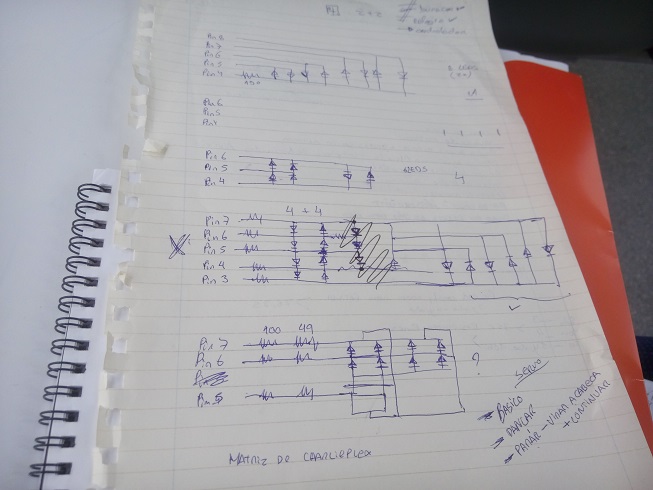 Pin 8
Pin 7
Pin 6
Pin 5
Pin 4
Pin 6
Pin 5
Pin 4
Pin 6
Pin 5
Pin 4
4
4 + 4
Pin 7
Pin 6
Pin 5
Pin 4
Pin 3
100 49
Pin 7
Pin 6
Pin 5
?
SERVO
BASICO
DANÇAR
PARAR - VIRAR A CABECA
+ CONTINUAR
MATRIZ DE CHARLIEPLEX